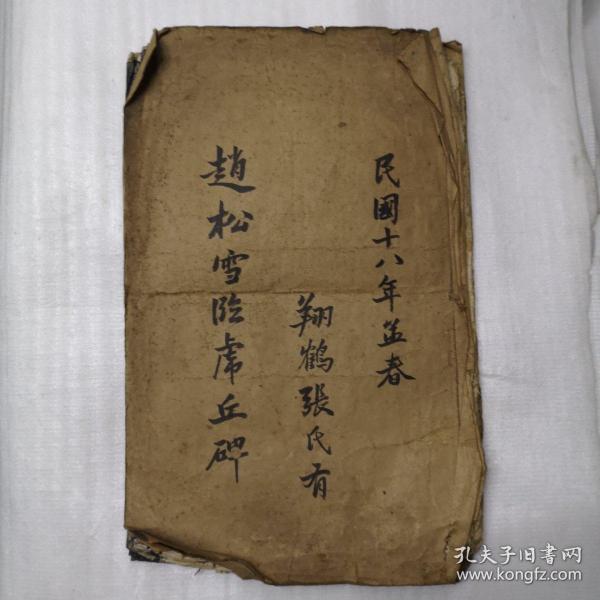 民國十八年孟春
翔鶴張氏有
趙松雪臨虎丘碑
孔夫子旧書网
www.kongfz.com